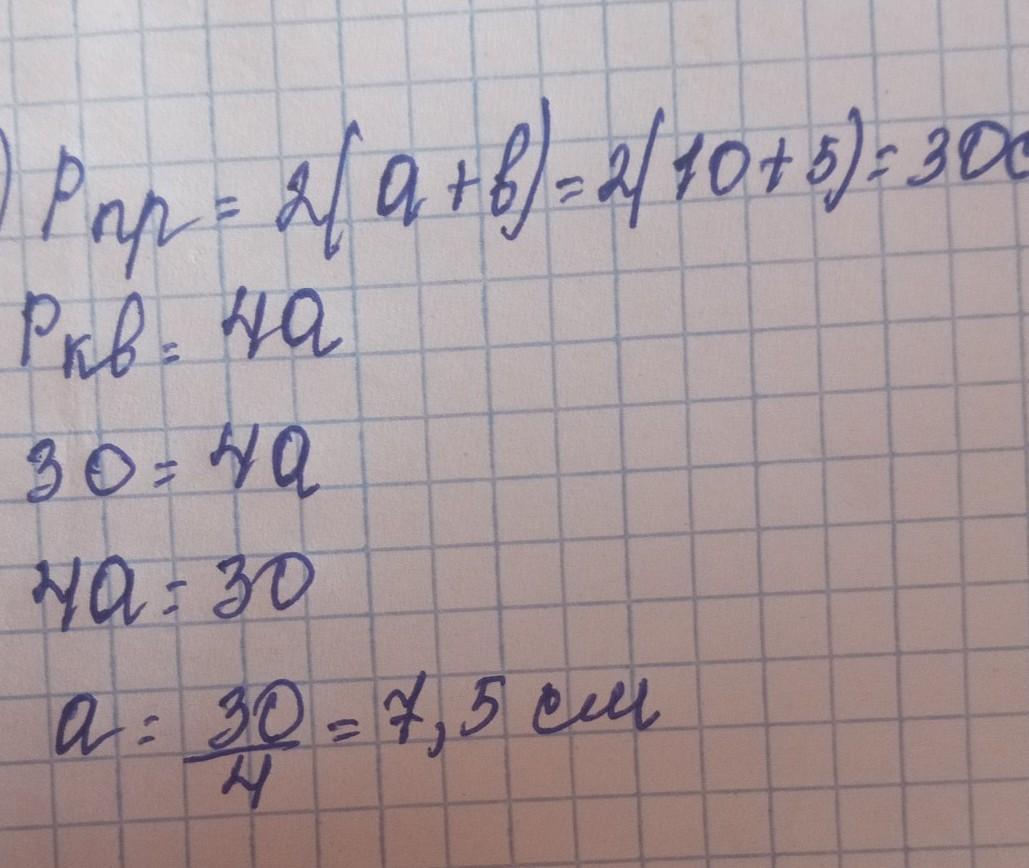 ) Pпр = 2(a+b)=2(10+5)=30с
Pкв = 4a
30 = 4a
4a = 30
a = 30/4 = 7,5 см